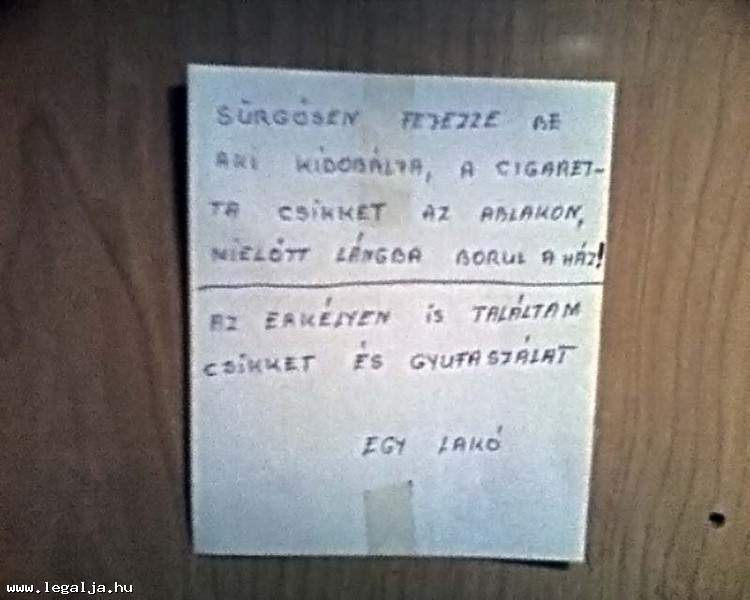 SÜRGŐSEN FEJEZZE BE
AKI KIDOBÁLTA, A CIGARET-
TA CSIKKET AZ ABLAKON,
MIELŐTT LÁNGBA BORUL A HÁZ!
AZ ERKÉLYEN IS TALÁLTAM
CSIKKET ÉS GYUFASZÁLAT
EGY LAKÓ
www.legalja.hu